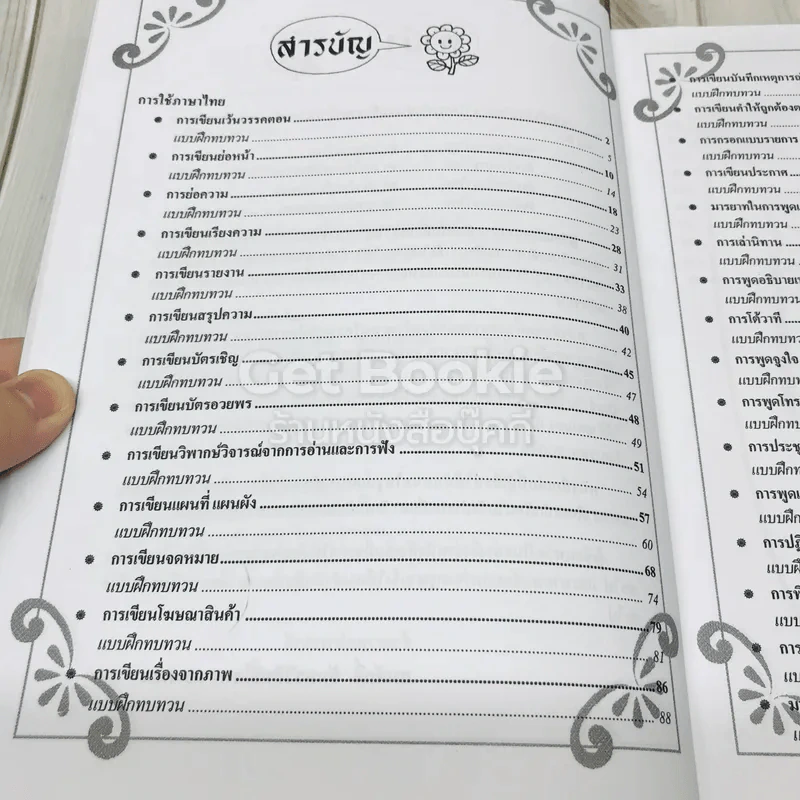 สารบัญ
การใช้ภาษาไทย
การเขียนเว้นวรรคตอน 2
แบบฝึกทบทวน 5
การเขียนย่อหน้า 10
แบบฝึกทบทวน 14
การย่อความ 18
แบบฝึกทบทวน 23
การเขียนเรียงความ 28
แบบฝึกทบทวน 31
การเขียนรายงาน 33
แบบฝึกทบทวน 38
การเขียนสรุปความ 40
แบบฝึกทบทวน 42
การเขียนบัตรเชิญ 45
แบบฝึกทบทวน 47
การเขียนบัตรอวยพร 48
แบบฝึกทบทวน 49
การเขียนวิพากษ์วิจารณ์จากการอ่านและการฟัง 51
แบบฝึกทบทวน 54
การเขียนแผนที่ แผนผัง 57
แบบฝึกทบทวน 60
การเขียนจดหมาย 68
แบบฝึกทบทวน 74
การเขียนโฆษณาสินค้า 79
แบบฝึกทบทวน 81
การเขียนเรื่องจากภาพ 86
แบบฝึกทบทวน 88
การเขียนบันทึกเหตุการณ์
แบบฝึกทบทวน
การเขียนคำให้ถูกต้อง
แบบฝึกทบทวน
การกรอกแบบรายการ
แบบฝึกทบทวน
การเขียนประกาศ
แบบฝึกทบทวน
มารยาทในการพูด
แบบฝึกทบทวน
การเล่านิทาน
แบบฝึกทบทวน
การพูดอธิบาย
แบบฝึกทบทวน
การโต้วาที
แบบฝึกทบทวน
การพูดจูงใจ
แบบฝึกทบทวน
การพูดโทร
แบบฝึกทบทวน
การประชุ
แบบฝึกทบ
การพูด
แบบฝึกท
การปฏิ
แบบฝึ
การ
แบบ
Get Bookie
ร้านหนังสือบุ๊คกี้